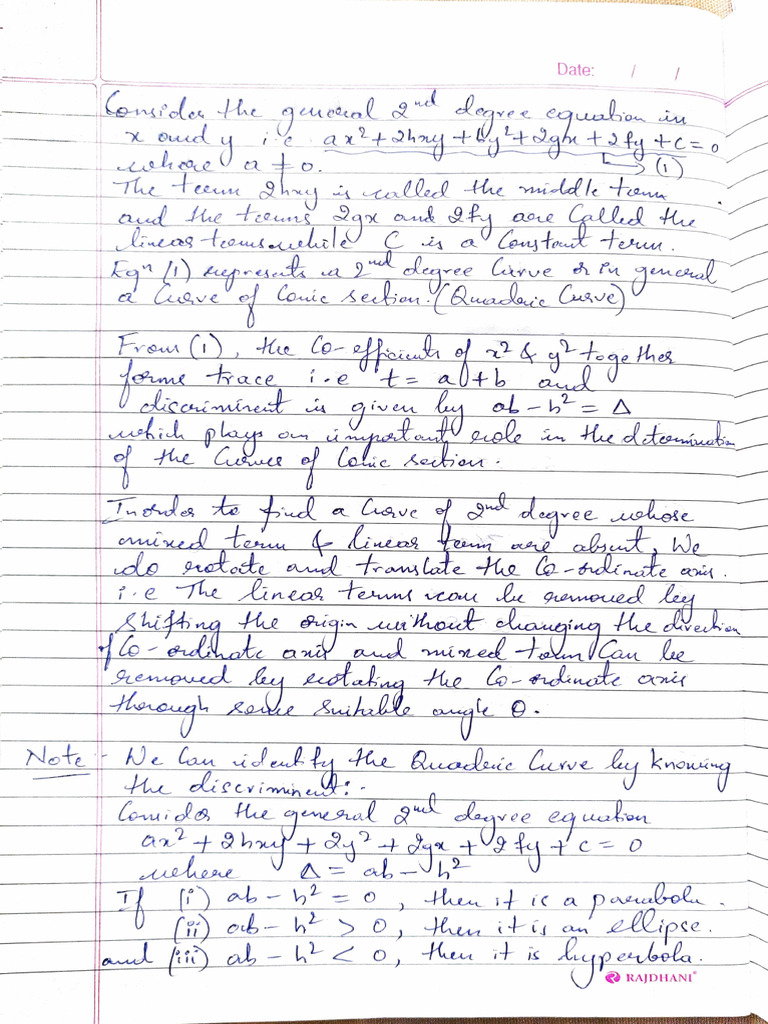 Date: / /
Consider the general 2nd degree equation in
x and y i.e ax² + 2hxy + by² + 2gx + 2fy + c = 0
where a ≠ 0. → (1)
The term 2hxy is called the middle term
and the terms 2gx and 2fy are Called the
linear terms while C is a Constant term.
Eqn (1) represents a 2nd degree Curve or in general
a Curve of Conic section. (Quadric Curve)
From (1), the Co-efficients of x² & y² together
forms trace i.e t = a + b and
discriminent is given by ab - h² = Δ
which plays an important role in the determination
of the Curve of Conic section.
Inorder to find a Curve of 2nd degree whose
mixed term & linear term are absent, We
do rotate and translate the Co-ordinate axis.
i.e The linear terms can be removed by
shifting the origin without changing the direction
of Co-ordinate axis and mixed term Can be
removed by rotating the Co-ordinate axis
thorough some suitable angle θ.
Note :- We Can identify the Quadric Curve by knowing
the discriminent :-
Consider the general 2nd degree equation
ax² + 2hxy + 2y² + 2gx + 2fy + c = 0
where Δ = ab - h²
If (i) ab - h² = 0, then it is a parabola.
(ii) ab - h² > 0, then it is an ellipse.
and (iii) ab - h² < 0, then it is hyperbola.
RAJDHANI